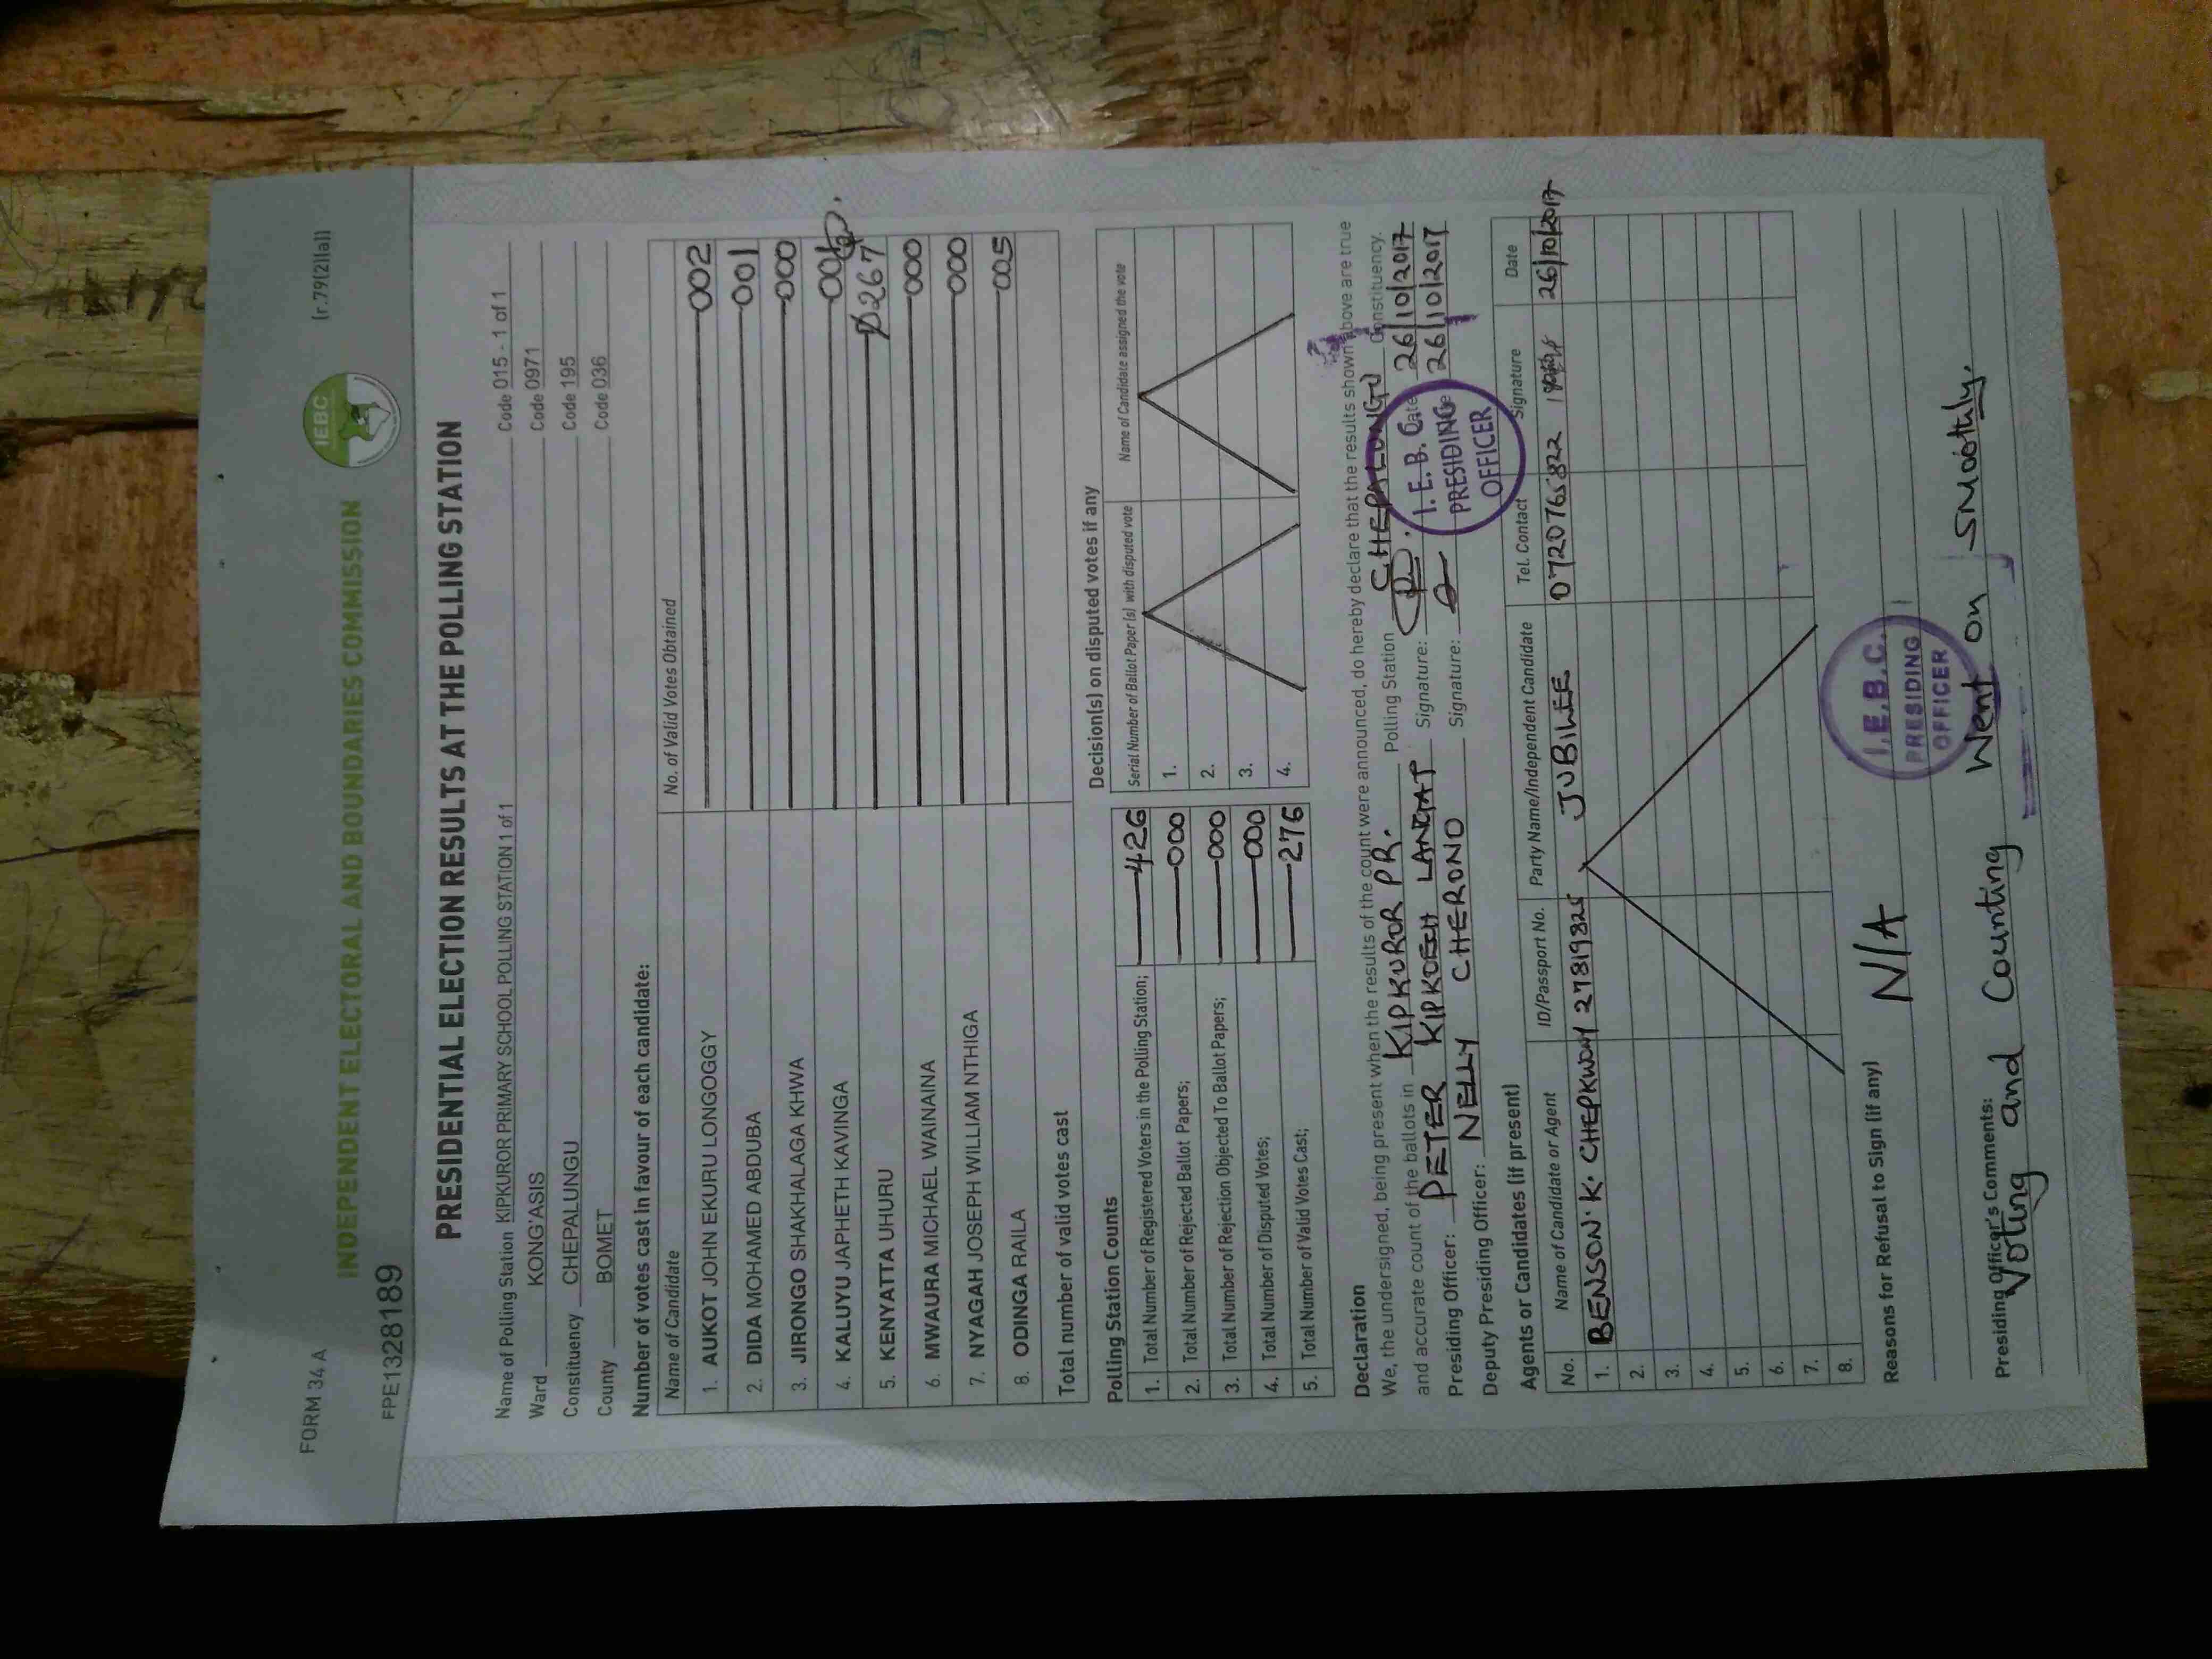 FORM 34 A
(r.79(2)(a))
IEBC
INDEPENDENT ELECTORAL AND BOUNDARIES COMMISSION
FPE1328189
PRESIDENTIAL ELECTION RESULTS AT THE POLLING STATION
Name of Polling Station KIPKUROR PRIMARY SCHOOL POLLING STATION 1 of 1 Code 015 - 1 of 1
Ward KONG'ASIS Code 0971
Constituency CHEPALUNGU Code 195
County BOMET Code 036
Number of votes cast in favour of each candidate:
Name of Candidate No. of Valid Votes Obtained
1. AUKOT JOHN EKURU LONGOGGY 002
2. DIDA MOHAMED ABDUBA 001
3. JIRONGO SHAKHALAGA KHWA 000
4. KALUYU JAPHETH KAVINGA
5. KENYATTA UHURU 267
6. MWAURA MICHAEL WAINAINA 000
7. NYAGAH JOSEPH WILLIAM NTHIGA 000
8. ODINGA RAILA 005
Total number of valid votes cast
Polling Station Counts
1. Total Number of Registered Voters in the Polling Station; 426
2. Total Number of Rejected Ballot Papers; 000
3. Total Number of Rejection Objected To Ballot Papers; 000
4. Total Number of Disputed Votes; 000
5. Total Number of Valid Votes Cast; 276
Decision(s) on disputed votes if any
Serial Number of Ballot Paper (s) with disputed vote Name of Candidate assigned the vote
1.
2.
3.
4.
Declaration
We, the undersigned, being present when the results of the count were announced, do hereby declare that the results shown above are true
and accurate count of the ballots in KIPKUROR PR. Polling Station CHEPALUNGU Constituency.
Presiding Officer: PETER KIPKOECH LANGAT Signature: Date 26/10/2017
Deputy Presiding Officer: NELLY CHERONO Signature: 26/10/2017
I.E.B.C.
PRESIDING
OFFICER
Agents or Candidates (if present)
No. Name of Candidate or Agent ID/Passport No. Party Name/Independent Candidate Tel. Contact Signature Date
1. BENSON K. CHEPKWONY 27819825 JUBILEE 0720765822 26/10/2017
2.
3.
4.
5.
6.
7.
8.
Reasons for Refusal to Sign (if any) N/A
I.E.B.C.
PRESIDING
OFFICER
Presiding Officer's Comments:
Voting and Counting Went on smoothly.